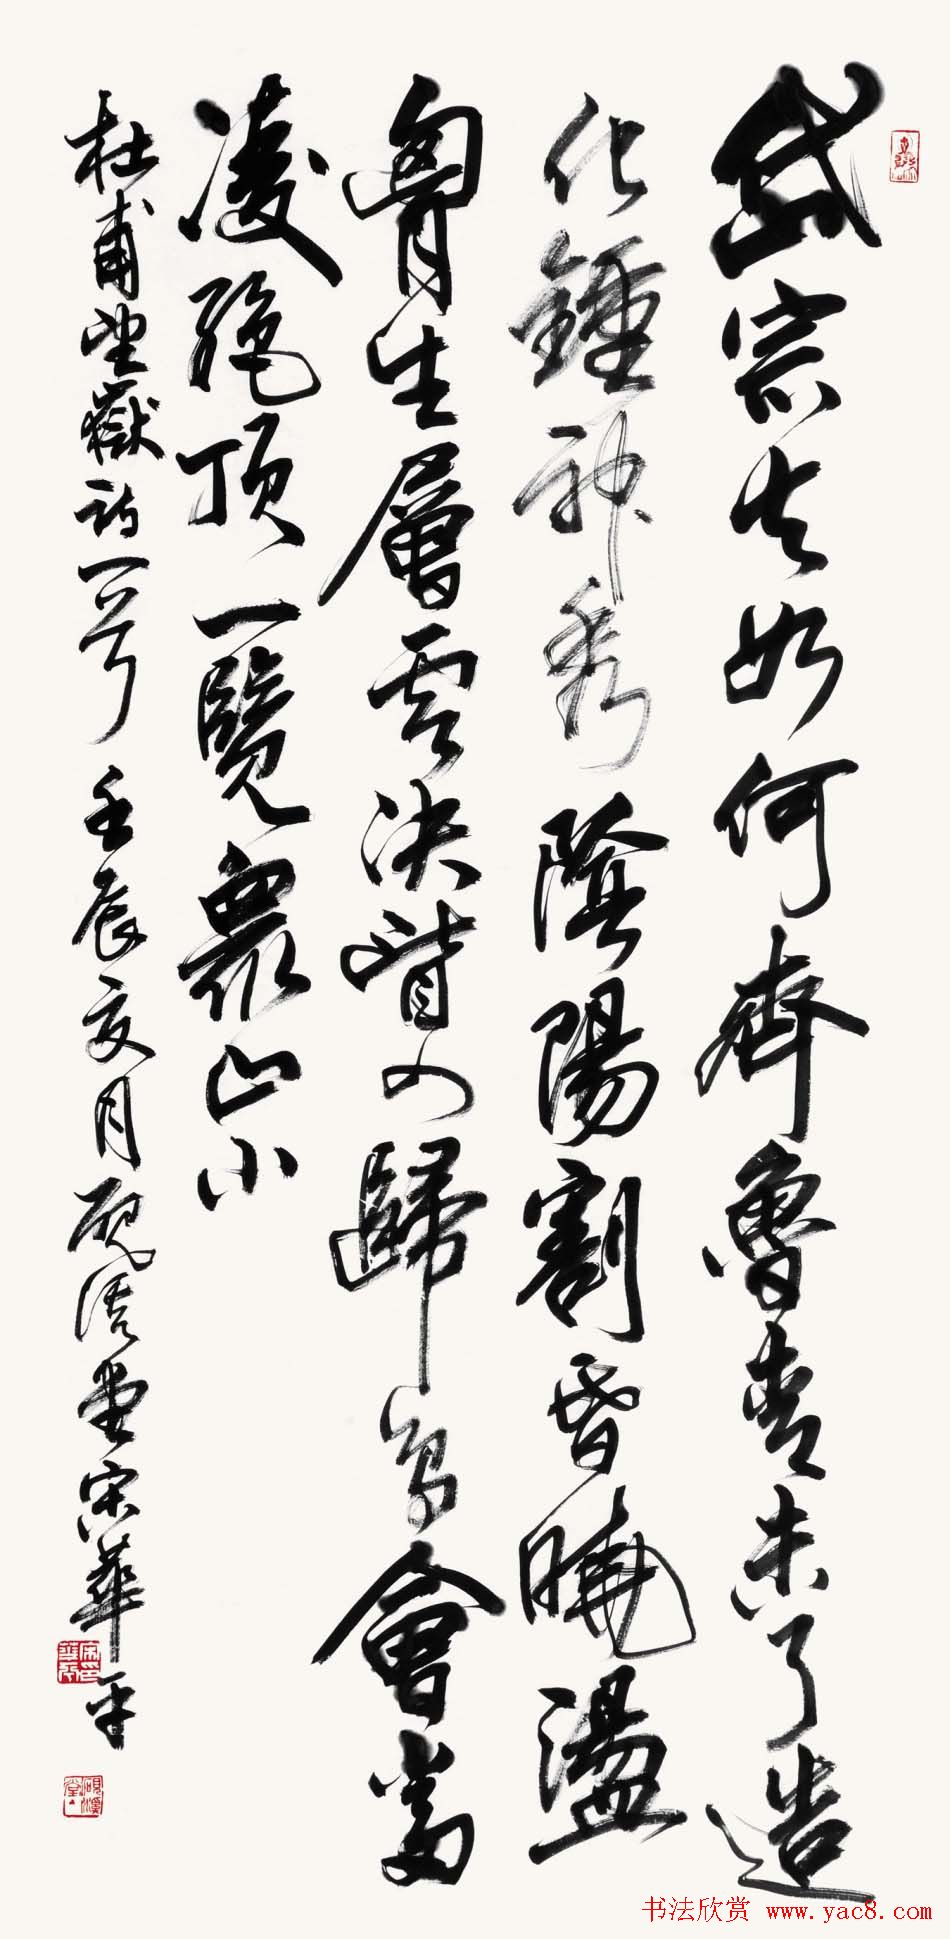 岱宗夫如何齊魯青未了造
化鍾神秀陰陽割昏曉盪
胷生層雲決眥入歸鳥會當
凌絕頂一覽衆山小
杜甫望嶽詩一首 壬辰夏月硯溪堂宋華平
書法欣赏 www.yac8.com